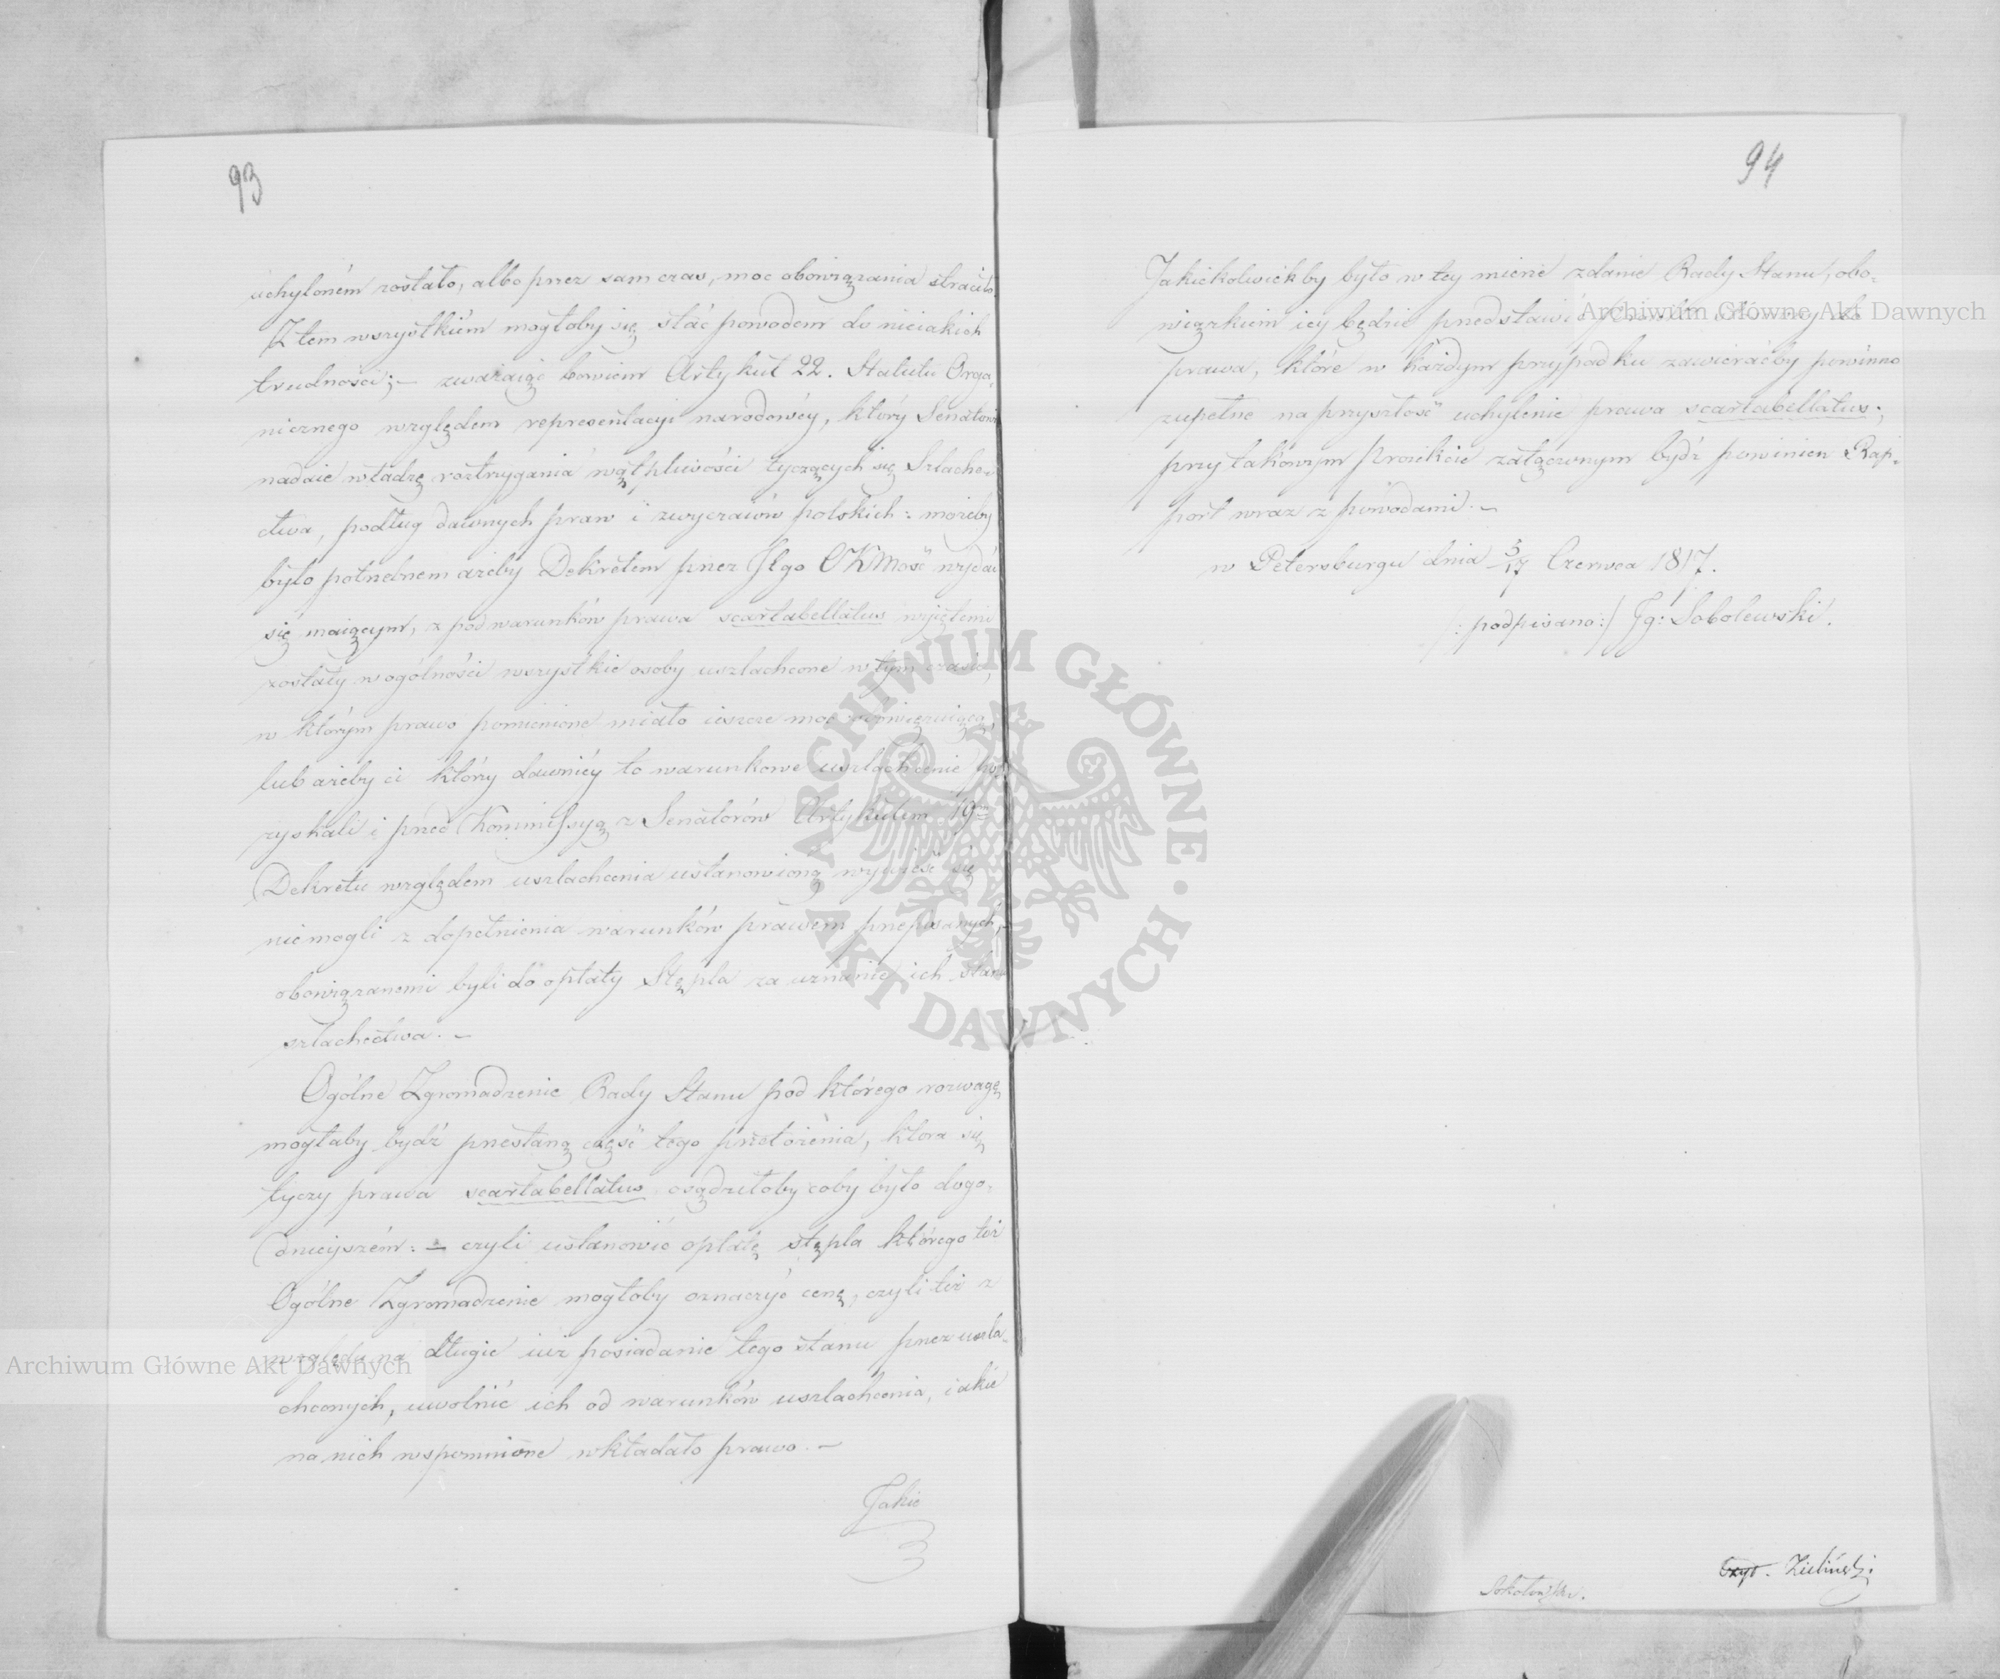 93
uchyloném zostało, albo przez sam czas, moc obowiązania straciło.
Z tem wszystkiém mogłoby się stać powodem do nieiakich
trudności; — zważaiąc bowiem Artykuł 22. Statutu Orga-
nicznego względem reprezentacyi narodowéy, który Senatowi
nadaie władzę roztrzygania wątpliwości tyczących się Szlache-
ctwa, podług dawnych praw i zwyczaiów polskich: możeby
było potrzebnem ażeby Dekretem przez Jego CKMość wydać
się maiącym, z pod warunków prawa scartabellatus wyjętemi
zostały w ogólności wszystkie osoby uszlachcone w tym czasie,
w którym prawo pomienione miało ieszcze moc obowięzuiącą,
lub ażeby ci którzy dawniéy to warunkowe uszlachcenie po-
zyskali i przed Kommissyą z Senatorów Artykułem 19m
Dekretu względem uszlachcenia ustanowioną wywieść się
niemogli z dopełnienia warunków prawem przepisanych,
obowiązanemi byli do opłaty Stępla za uznanie ich stanu
szlachectwa. —
Ogólne Zgromadzenie Rady Stanu pod którego rozwagę
mogłaby bydź przesłaną część tego przełożenia, która się
tyczy prawa scartabellatus osądziłoby coby było dogo-
dnieyszém: — czyli ustanowić opłatę stępla którego też
Ogólne Zgromadzenie mogłoby oznaczyć cenę, czyli też z
względu na długie iuż posiadanie tego stanu przez uszla-
chconych, uwolnić ich od warunków uszlachcenia, iakie
na nich wspomnione wkładało prawo. —
Jakie
94
Jakiekolwiekby było w tey mierze zdanie Rady Stanu, obo-
wiązkiem iey będzie przedstawić
prawa, które w każdym przypadku zawieraćby powinno
zupełne na przyszłość uchylenie prawa scartabellatus;
przy takowym Proiekcie załączonym bydź powinien Rap-
port wraz z powodami. —
w Petersburgu dnia 5/17 Czerwca 1817.
/: podpisano :/ Ig: Sobolewski.
Sokołowski.
Czyt. Zieliński
Archiwum Główne Akt Dawnych
Archiwum Główne Akt Dawnych
ARCHIWUM GŁÓWNE · AKT DAWNYCH ·